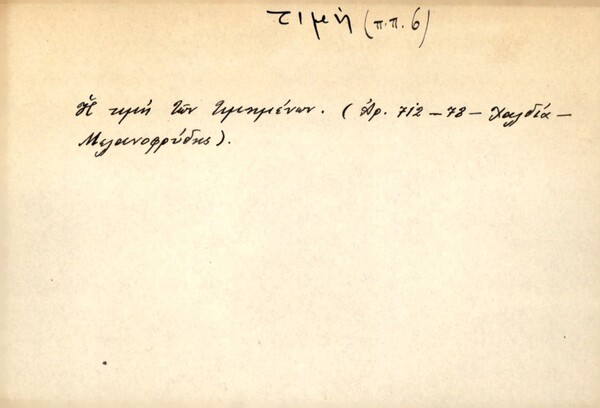 τιμή (π.π. 6)
Ἡ τιμή τῶν τιμημένων. (Ἀρ. 712 – 78 – Χαλδία –
Μελανοφρύδης).